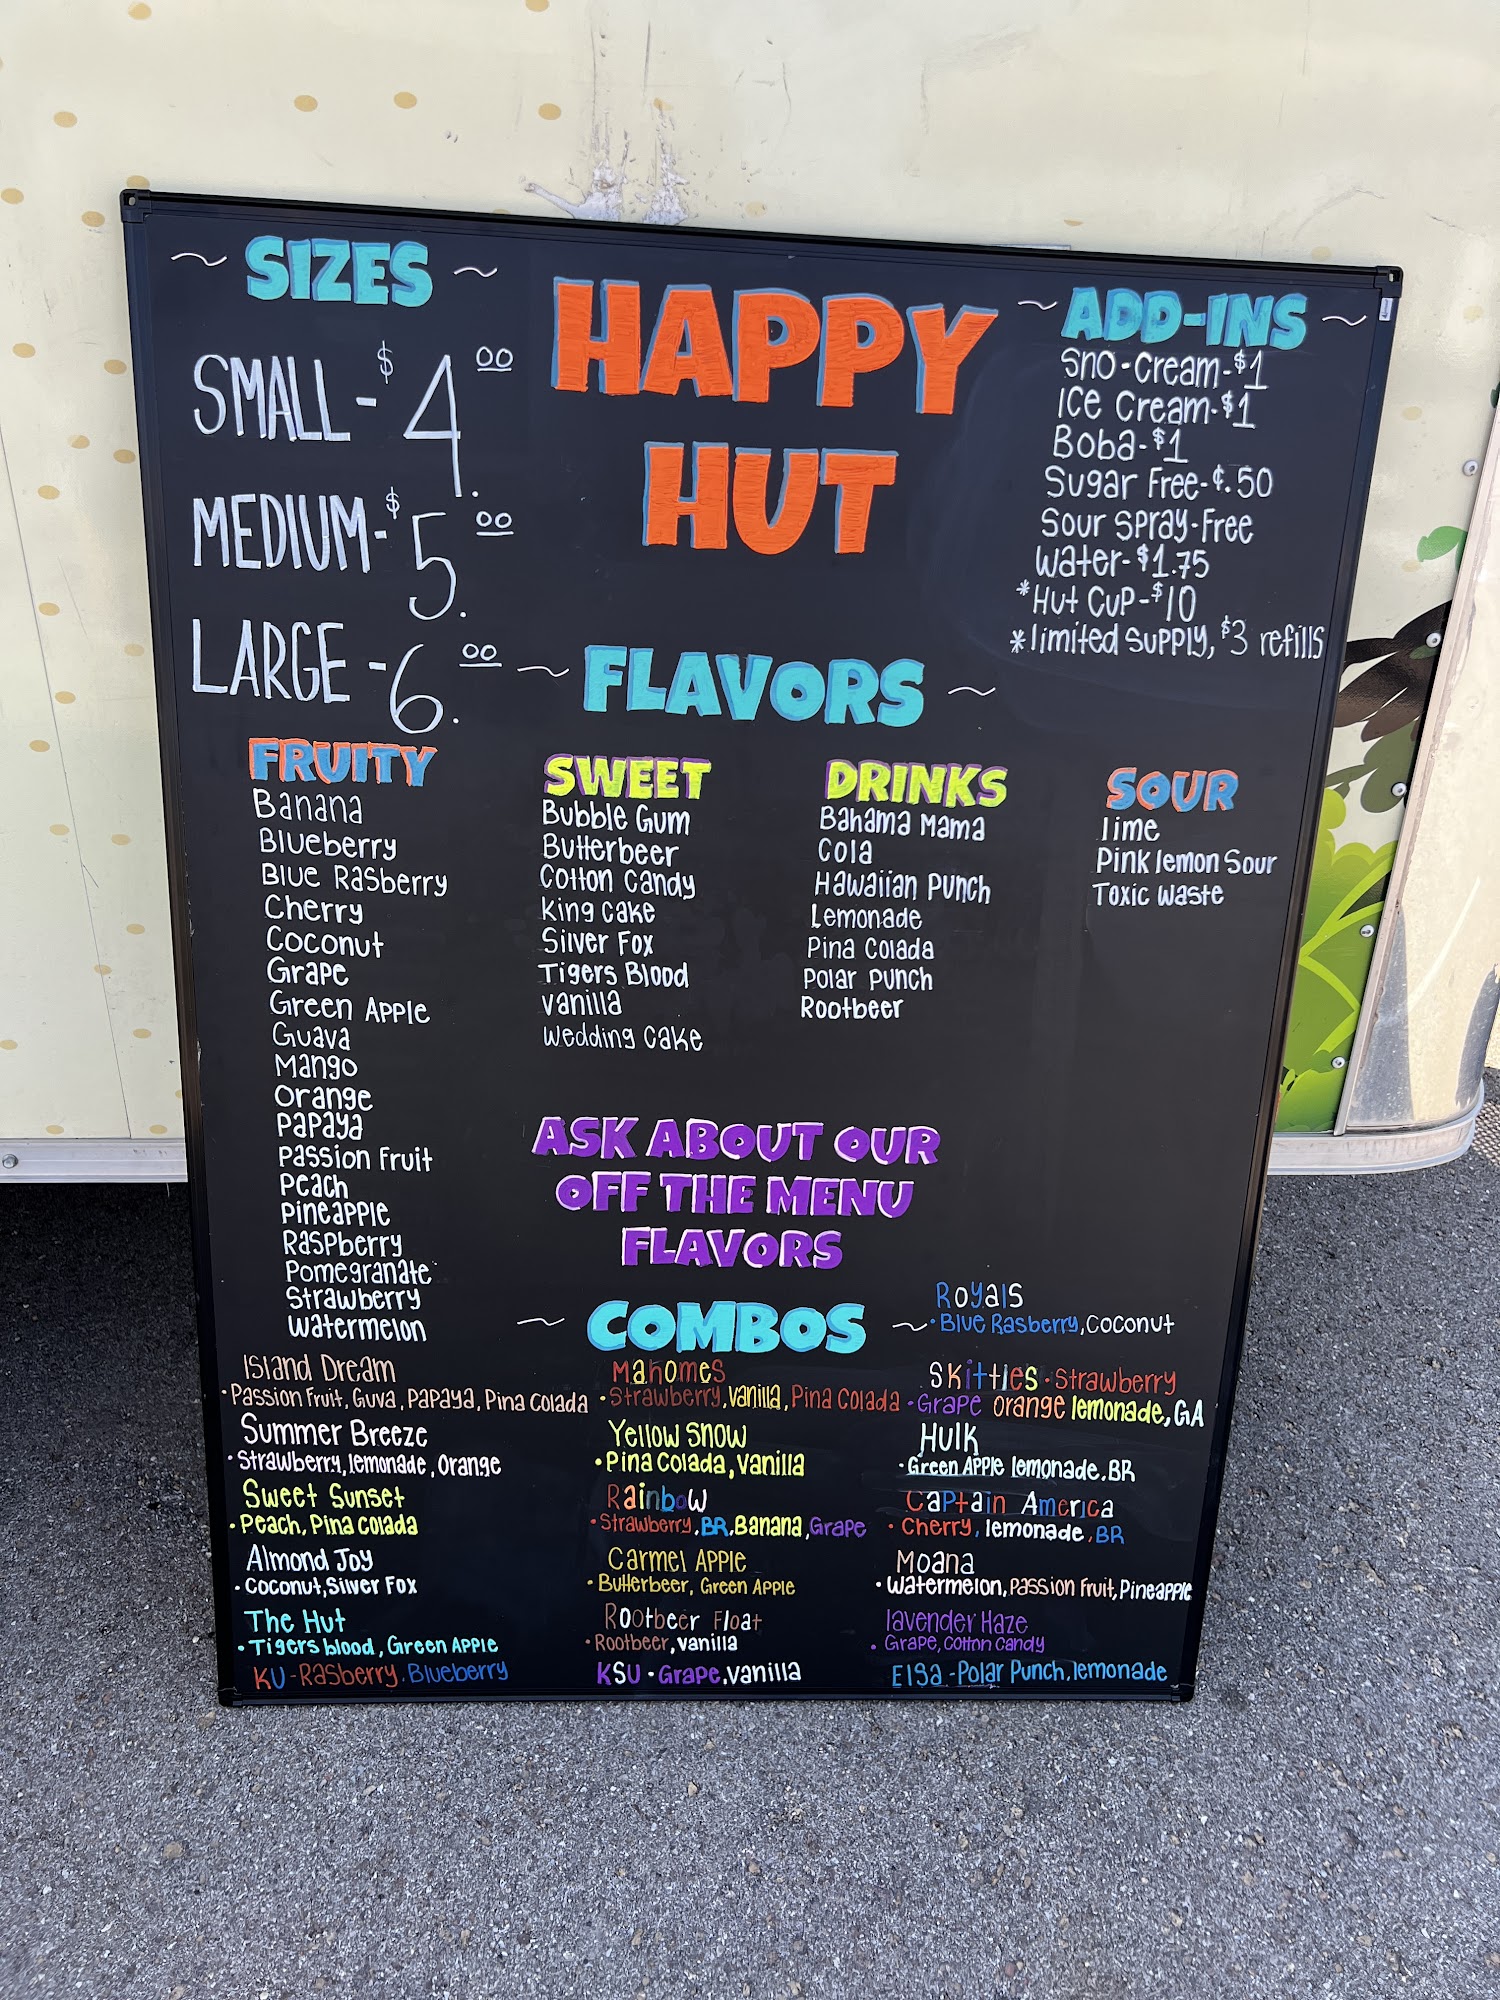 ~ SIZES ~
SMALL - $4.00
MEDIUM - $5.00
LARGE - 6.00
HAPPY
HUT
~ ADD-INS ~
Sno-Cream-$1
Ice Cream-$1
Boba-$1
Sugar Free-¢.50
Sour Spray-Free
Water-$1.75
*Hut Cup-$10
*limited supply, $3 refills
~ FLAVORS ~
FRUITY
Banana
Blueberry
Blue Rasberry
Cherry
Coconut
Grape
Green Apple
Guava
Mango
Orange
Papaya
Passion Fruit
Peach
Pineapple
Raspberry
Pomegranate
Strawberry
Watermelon
SWEET
Bubble Gum
Butterbeer
Cotton Candy
King Cake
Silver Fox
Tigers Blood
Vanilla
Wedding Cake
DRINKS
Bahama Mama
Cola
Hawaiian Punch
Lemonade
Pina Colada
Polar Punch
Rootbeer
SOUR
lime
Pink lemon Sour
Toxic Waste
ASK ABOUT OUR
OFF THE MENU
FLAVORS
~ COMBOS ~
Island Dream
•Passion Fruit, Guva, Papaya, Pina Colada
Summer Breeze
•Strawberry, lemonade, Orange
Sweet Sunset
•Peach, Pina Colada
Almond Joy
•Coconut, Silver Fox
The Hut
•Tigers blood, Green Apple
KU-Rasberry, Blueberry
Mahomes
•Strawberry, Vanilla, Pina Colada
Yellow Snow
•Pina Colada, Vanilla
Rainbow
•Strawberry, BR, Banana, Grape
Carmel Apple
•Butterbeer, Green Apple
Rootbeer Float
•Rootbeer, Vanilla
KSU•Grape, Vanilla
Royals
•Blue Rasberry, Coconut
Skittles•Strawberry
•Grape orange lemonade, GA
Hulk
•Green Apple lemonade, BR
Captain America
•Cherry, lemonade, BR
Moana
•Watermelon, Passion Fruit, Pineapple
lavender Haze
•Grape, Cotton Candy
Elsa-Polar Punch, lemonade